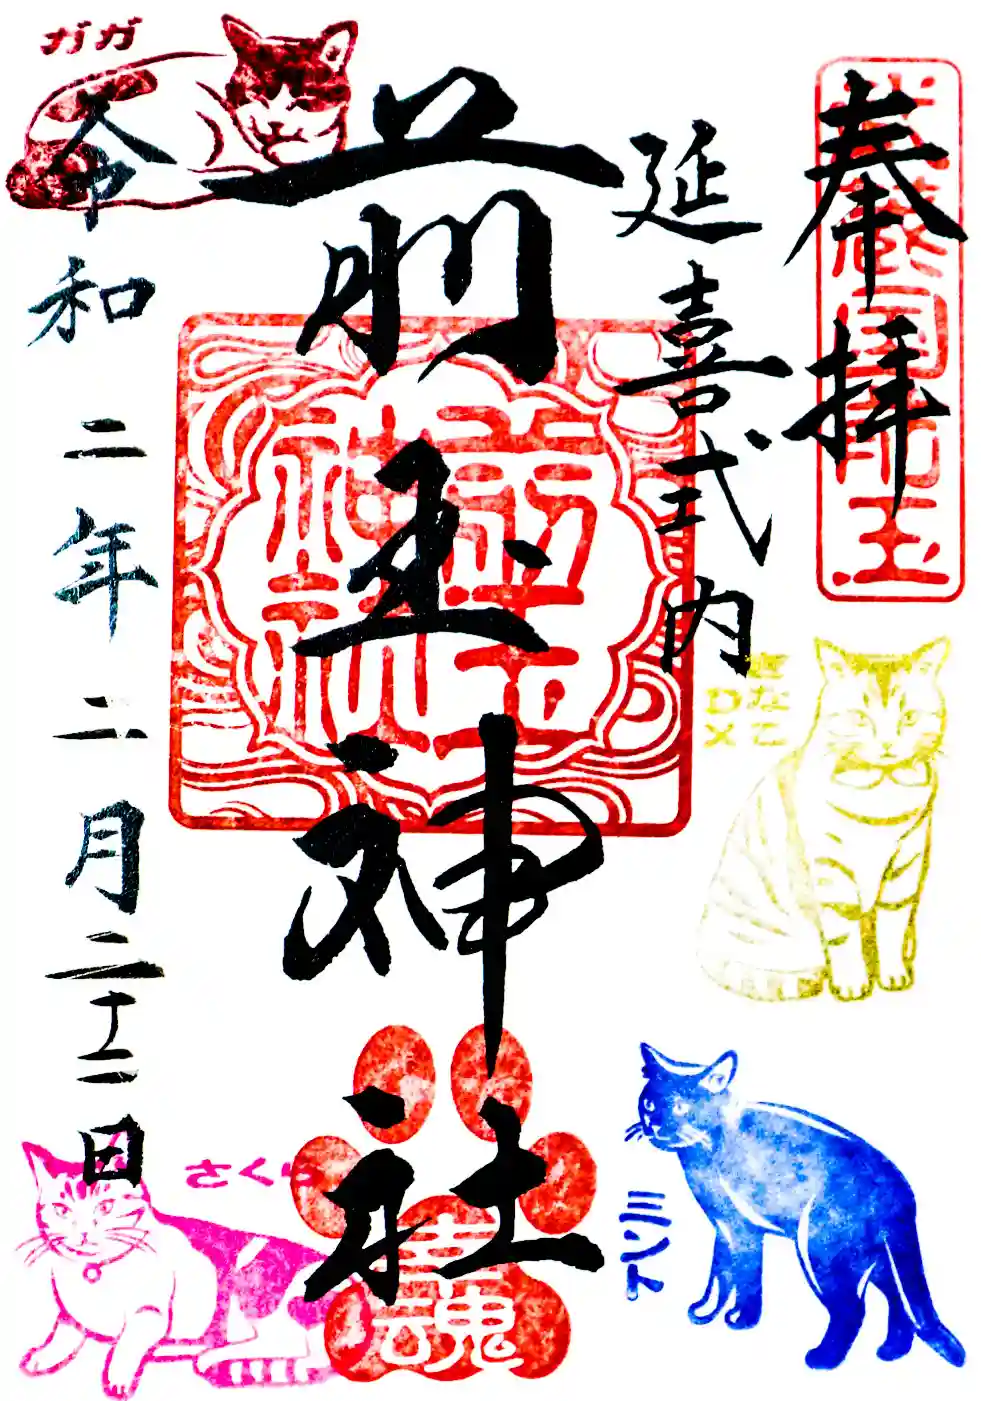 奉拝
武蔵国埼玉
延喜式内
前玉神社
前玉神社
幸魂
令和二年二月二十二日
ガガ
きなこ
ミント
さくら